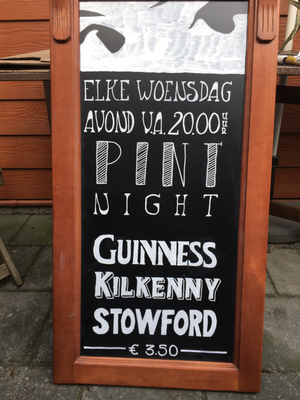 ELKE WOENSDAG
AVOND V.A. 20.00 UUR
PINT
NIGHT
GUINNESS
KILKENNY
STOWFORD
€ 3.50